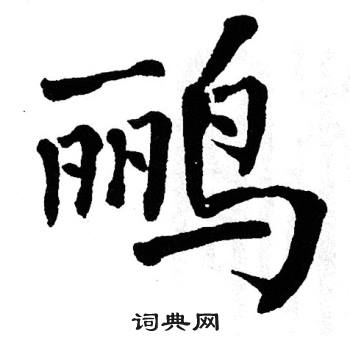 鹂
词典网